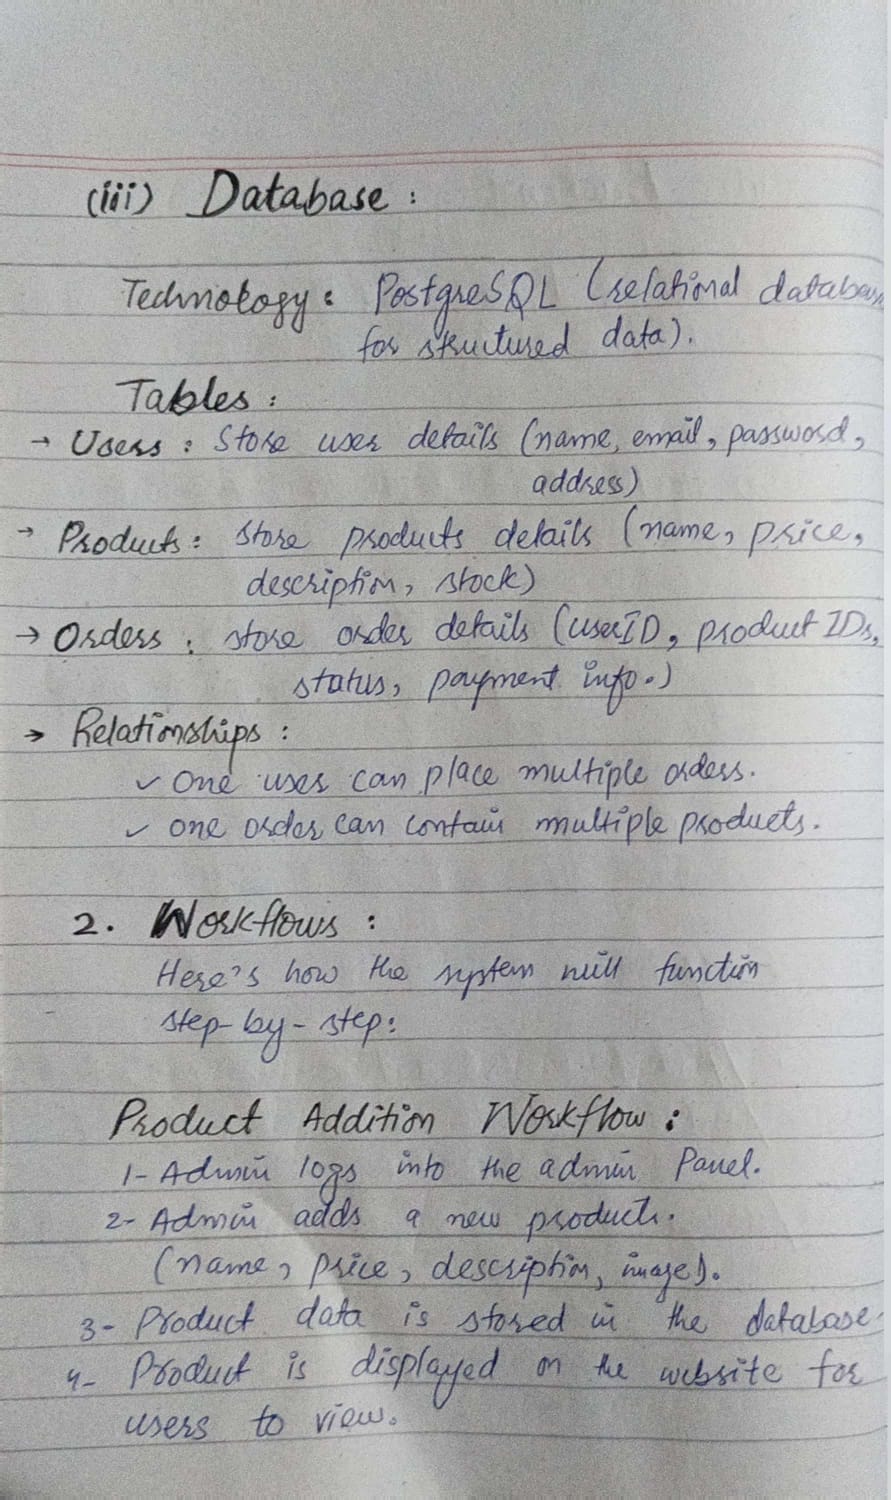 (iii) Database :
Technology : PostgreSQL (relational database
for structured data).
Tables :
→ Users : Store user details (name, email, password,
address)
→ Products : Store products details (name, price,
description, stock)
→ Orders : store order details (userID, product IDs,
status, payment info.)
→ Relationships :
✓ One user can place multiple orders.
✓ one order can contain multiple products.
2. Workflows :
Here's how the system will function
step-by-step:
Product Addition Workflow :
1- Admin logs into the admin Panel.
2- Admin adds a new product.
(name, price, description, image).
3- Product data is stored in the database.
4- Product is displayed on the website for
users to view.